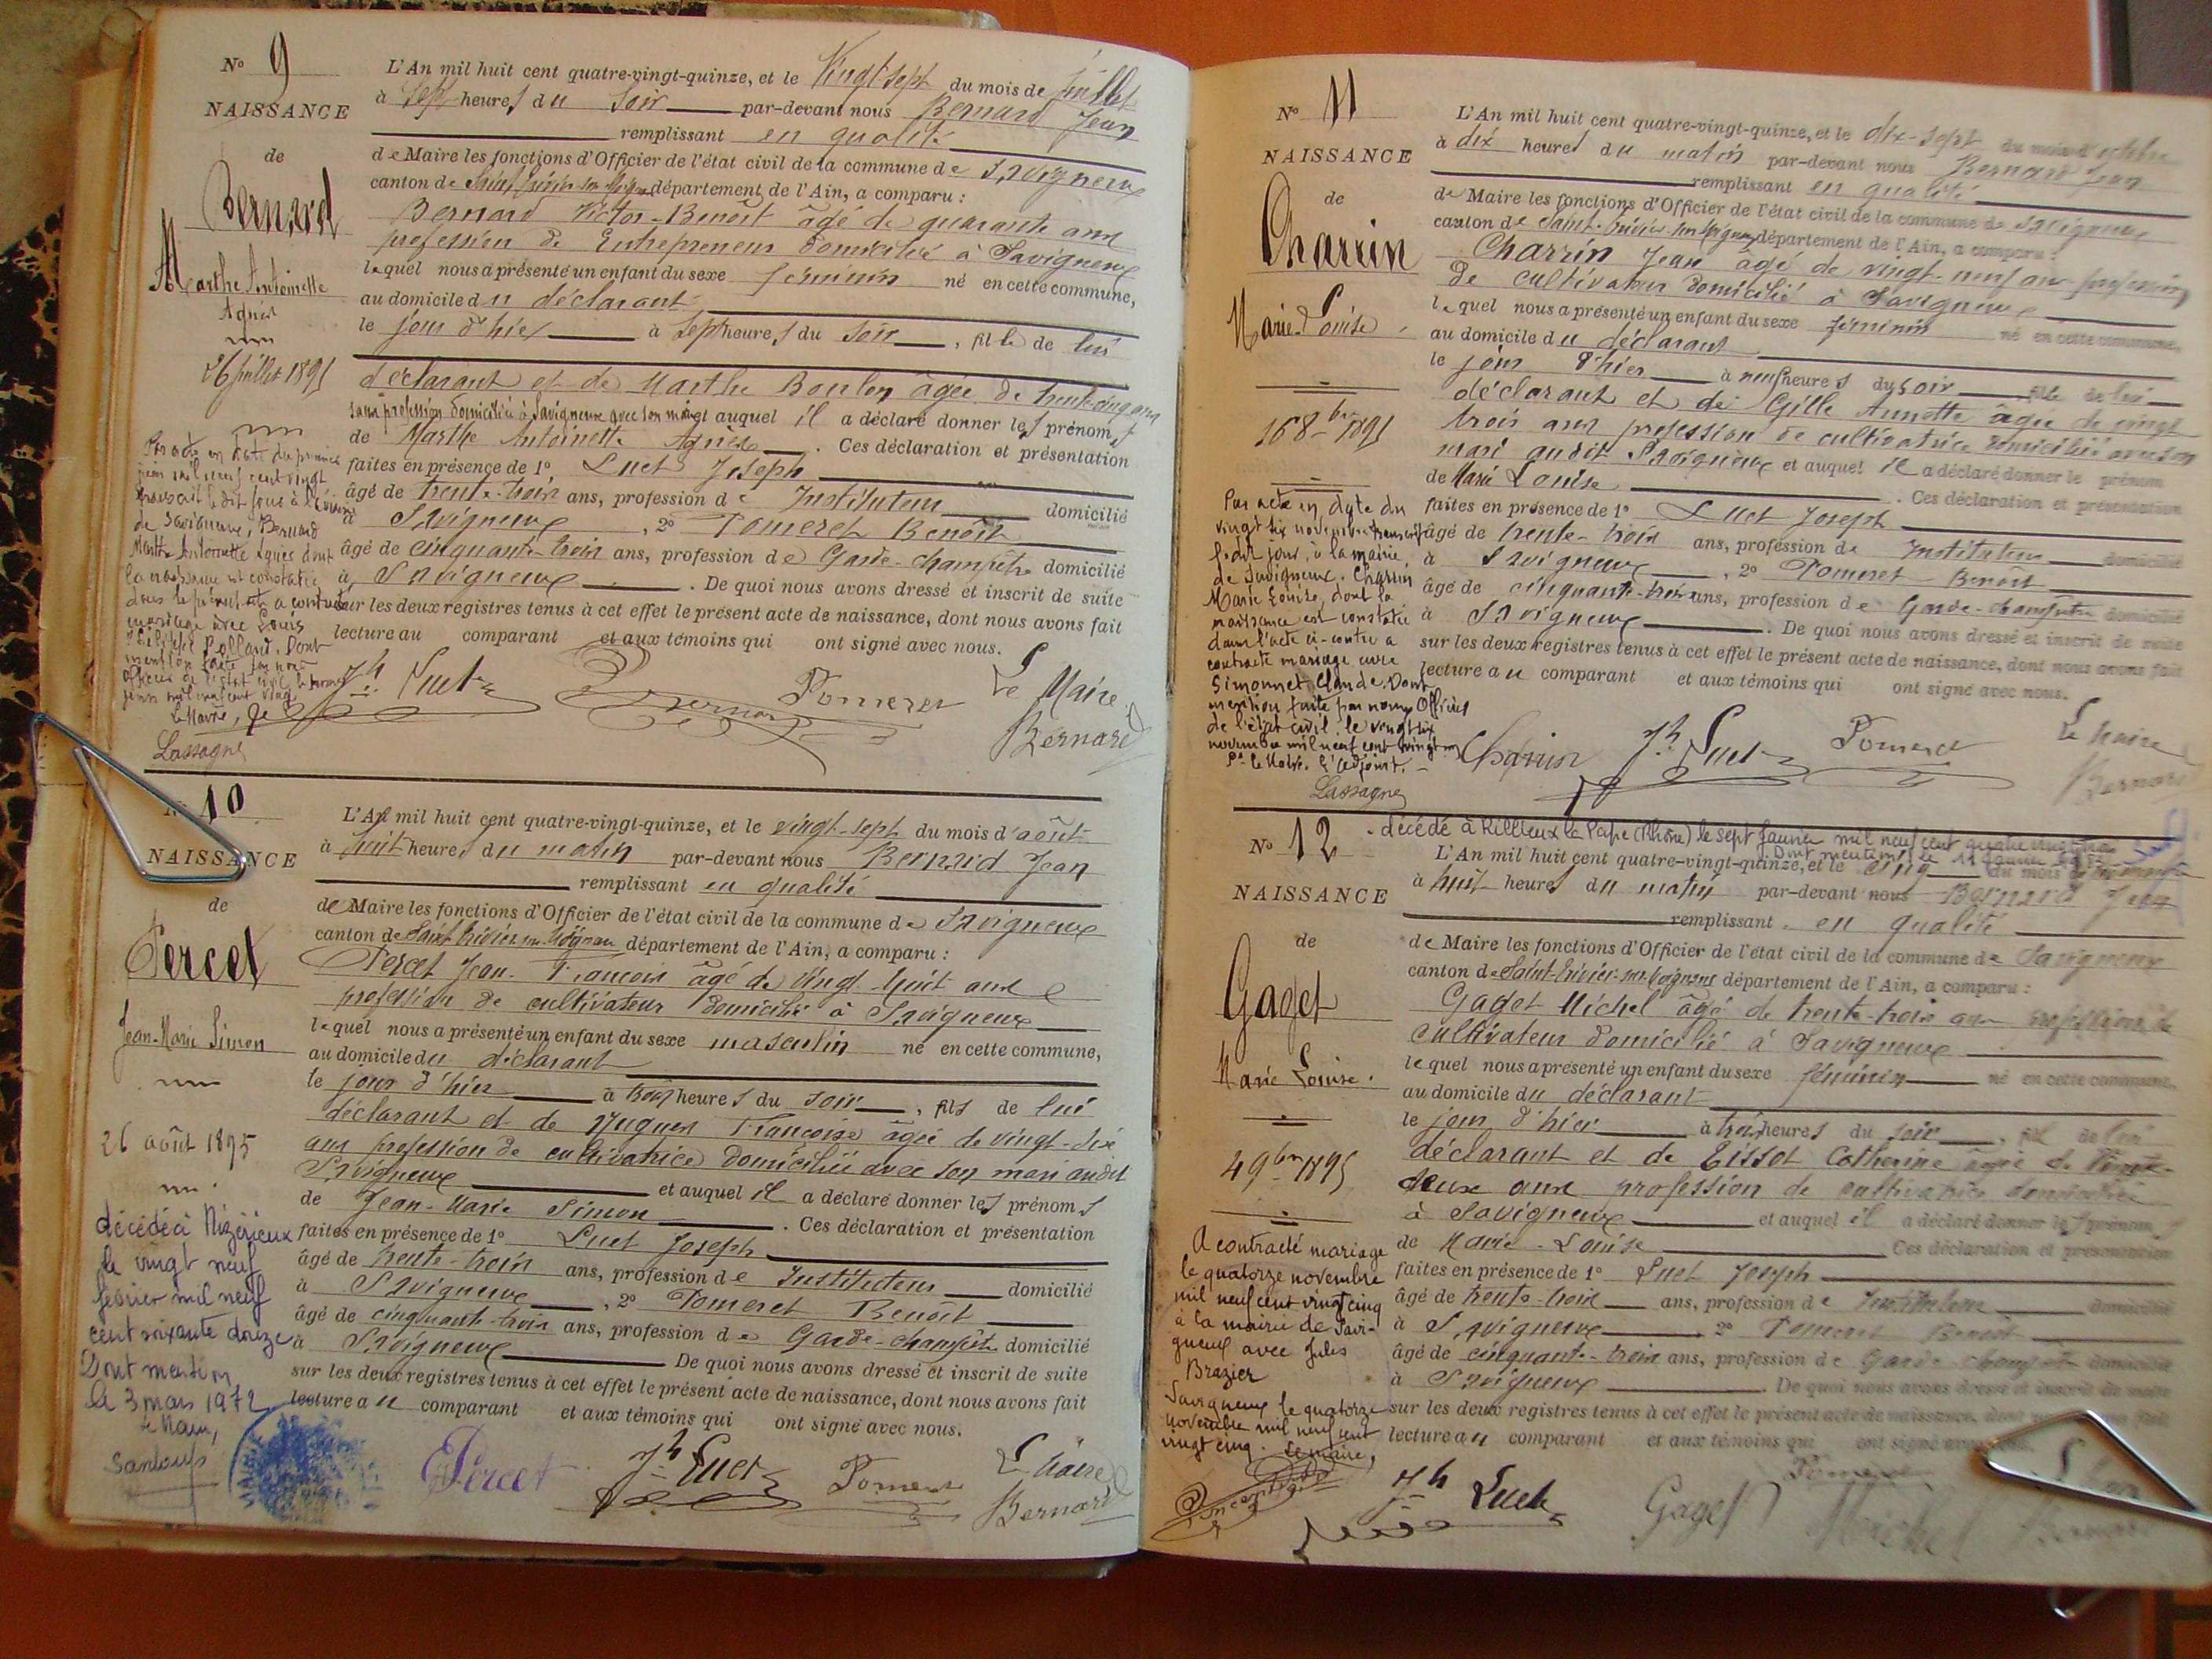 N° 9
NAISSANCE
de
Bernard
Marthe Antoinette
Agnès
26 juillet 1895
L'An mil huit cent quatre-vingt-quinze, et le Vingt-sept du mois de juillet
à sept heures du soir par-devant nous Bernard Jean
remplissant en qualité
de Maire les fonctions d'Officier de l'état civil de la commune de Savigneux
canton de Saint Trivier sur Moignans département de l'Ain, a comparu :
Bernard Victor-Benoît âgé de quarante ans
profession de Entrepreneur domicilié à Savigneux
lequel nous a présenté un enfant du sexe féminin né en cette commune,
au domicile du déclarant
le jour d'hier à sept heures du soir, fille de lui
déclarant et de Marthe Boulon âgée de trente-cinq ans
sans profession domiciliée à Savigneux avec son mari et auquel il a déclaré donner les prénoms
de Marthe Antoinette Agnès. Ces déclaration et présentation
faites en présence de 1° Luet Joseph
âgé de trente-trois ans, profession de Instituteur domicilié
à Savigneux, 2° Pomeret Benoît
âgé de cinquante-trois ans, profession de Garde-champêtre domicilié
à Savigneux. De quoi nous avons dressé et inscrit de suite
sur les deux registres tenus à cet effet le présent acte de naissance, dont nous avons fait
lecture au comparant et aux témoins qui ont signé avec nous.
Par acte en date du premier
juin mil neuf cent vingt
transcrit le dit jour à la mairie
de Savigneux, Bernard
Marthe Antoinette Agnès dont
la naissance est constatée
dans le présent acte a contracté
mariage avec Louis
Philippe Rolland. Dont
mention faite par nous
Officier de l'état civil le premier
juin mil neuf cent vingt
Le Maire,
Lassagne
Jh Luet
Bernard
Pomeret
Le Maire
Bernard
N° 10
NAISSANCE
de
Percet
Jean-Marie Simon
26 août 1895
L'An mil huit cent quatre-vingt-quinze, et le vingt-sept du mois d'août
à huit heures du matin par-devant nous Bernard Jean
remplissant en qualité
de Maire les fonctions d'Officier de l'état civil de la commune de Savigneux
canton de Saint Trivier sur Moignans département de l'Ain, a comparu :
Percet Jean-François âgé de vingt-huit ans
profession de cultivateur domicilié à Savigneux
lequel nous a présenté un enfant du sexe masculin né en cette commune,
au domicile du déclarant
le jour d'hier à trois heures du soir, fils de lui
déclarant et de Hugues Françoise âgée de vingt-six
ans profession de cultivatrice domiciliée avec son mari audit
Savigneux et auquel il a déclaré donner les prénoms
de Jean-Marie Simon. Ces déclaration et présentation
faites en présence de 1° Luet Joseph
âgé de trente-trois ans, profession de Instituteur domicilié
à Savigneux, 2° Pomeret Benoît
âgé de cinquante-trois ans, profession de Garde-champêtre domicilié
à Savigneux De quoi nous avons dressé et inscrit de suite
sur les deux registres tenus à cet effet le présent acte de naissance, dont nous avons fait
lecture au comparant et aux témoins qui ont signé avec nous.
décédé à Mizérieux
le vingt neuf
février mil neuf
cent soixante douze
Dont mention
le 3 mars 1972
Le Maire,
Percet
Jh Luet
Pomeret
Le Maire
Bernard
N° 11
NAISSANCE
de
Charrin
Marie-Louise
16 8bre 1895
L'An mil huit cent quatre-vingt-quinze, et le dix-sept du mois d'octobre
à dix heures du matin par-devant nous Bernard Jean
remplissant en qualité
de Maire les fonctions d'Officier de l'état civil de la commune de Savigneux
canton de Saint-Trivier-sur-Moignans département de l'Ain, a comparu :
Charrin Jean âgé de vingt-neuf ans profession
de cultivateur domicilié à Savigneux
lequel nous a présenté un enfant du sexe féminin né en cette commune,
au domicile du déclarant
le jour d'hier à neuf heures du soir fille de lui
déclarant et de Gille Annette âgée de vingt
trois ans profession de cultivatrice domiciliée avec son
mari audit Savigneux et auquel il a déclaré donner le prénom
de Marie Louise. Ces déclaration et présentation
faites en présence de 1° Luet Joseph
âgé de trente-trois ans, profession de Instituteur domicilié
à Savigneux, 2° Pomeret Benoît
âgé de cinquante-trois ans, profession de Garde-champêtre domicilié
à Savigneux. De quoi nous avons dressé et inscrit de suite
sur les deux registres tenus à cet effet le présent acte de naissance, dont nous avons fait
lecture au comparant et aux témoins qui ont signé avec nous.
Par acte en date du
vingt six novembre transcrit
le dit jour, à la mairie
de Savigneux. Charrin
Marie Louise, dont la
naissance est constatée
dans l'acte ci-contre a
contracté mariage avec
Simonnet Claude. Dont
mention faite par nous Officier
de l'état civil, le vingt six
novembre mil neuf cent vingt
Pr le Maire, l'adjoint.
Lassagne
Charrin
Jh Luet
Pomeret
Le Maire
Bernard
N° 12
décédé à Rillieux la Pape (Rhône) le sept janvier mil neuf cent quatre vingt
Dont mention le 11 janvier
NAISSANCE
de
Gaget
Marie Louise.
4 9bre 1895
L'An mil huit cent quatre-vingt-quinze, et le cinq du mois de novembre
à huit heures du matin par-devant nous Bernard Jean
remplissant en qualité
de Maire les fonctions d'Officier de l'état civil de la commune de Savigneux
canton de Saint-Trivier-sur-Moignans département de l'Ain, a comparu :
Gaget Michel âgé de trente-trois ans profession de
cultivateur domicilié à Savigneux
lequel nous a présenté un enfant du sexe féminin né en cette commune,
au domicile du déclarant
le jour d'hier à trois heures du soir, fille de lui
déclarant et de Eissot Catherine âgée de trente-
deux ans profession de cultivatrice domiciliée
à Savigneux et auquel il a déclaré donner les prénoms
de Marie-Louise Ces déclaration et présentation
faites en présence de 1° Luet Joseph
âgé de trente-trois ans, profession de Instituteur domicilié
à Savigneux 2° Pomeret Benoît
âgé de cinquante-trois ans, profession de Garde champêtre domicilié
à Savigneux De quoi nous avons dressé et inscrit de suite
sur les deux registres tenus à cet effet le présent acte de naissance, dont nous avons fait
lecture au comparant et aux témoins qui ont signé avec
A contracté mariage
le quatorze novembre
mil neuf cent vingt cinq
à la mairie de Savi-
gneux avec Jules
Brazier
Savigneux le quatorze
novembre mil neuf cent
vingt cinq. Le maire,
Jh Luet
Gaget Michel
Pomeret